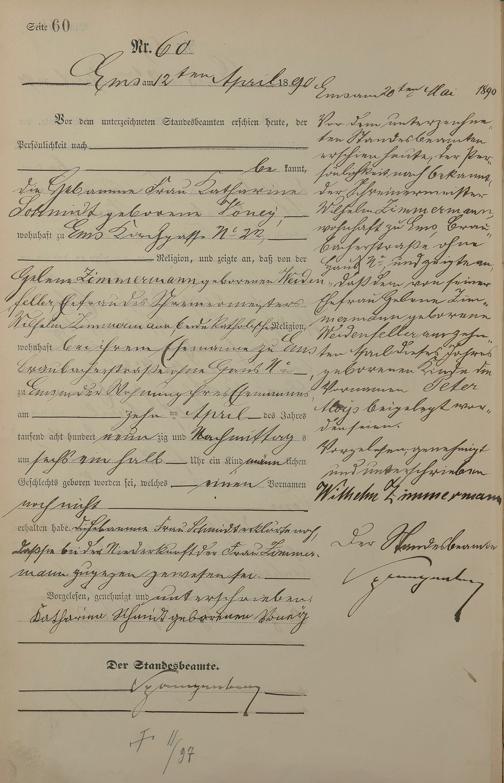 Seite 60
Nr. 60
Ems am 12ten April 1890
Vor dem unterzeichneten Standesbeamten erschien heute, der
Persönlichkeit nach
be kannt,
die Hebamme Frau Katharine
Schmidt geborene
wohnhaft zu Ems Kirchgasse No 22,
Religion, und zeigte an, daß von der
Helene Zimmermann geborenen Weiden-
feller Ehefrau des Schreinermeisters
Wilhelm Zimmermann beide katholischer Religion,
wohnhaft bei ihrem Ehemanne zu Ems
Braubacherstraße ohne Haus No
zu Ems in der Wohnung ihres Ehemannes,
am zehn ten April des Jahres
tausend acht hundert neun zig und Nachmittags
um sechs ein halb Uhr ein Kind männlichen
Geschlechts geboren worden sei, welches einen Vornamen
noch nicht
erhalten habe. Hebamme Frau Schmidt erklärte noch,
daß sie bei der Niederkunft der Frau Zimmer-
mann zugegen gewesen sei.
Vorgelesen, genehmigt und unterschrieben
Katharina Schmidt geborenen
Der Standesbeamte.
Spangenberg
11/97
Ems am 20ten Mai 1890
Vor dem unterzeichne-
ten Standesbeamten
erschien heute, der Per-
sönlichkeit nach bekannt,
der Schreinermeister
Wilhelm Zimmermann,
wohnhaft zu Ems, Brau-
bacherstraße ohne
Haus No und zeigte an,
daß dem von seiner
Ehefrau Helene Zim-
mermann geborene
Weidenfeller am zehn-
ten April dieses Jahres
geborenen Kinde die
Vornamen Peter
Alois beigelegt wor-
den seien.
Vorgelesen, genehmigt
und unterschrieben
Wilhelm Zimmermann
Der Standesbeamte
Spangenberg